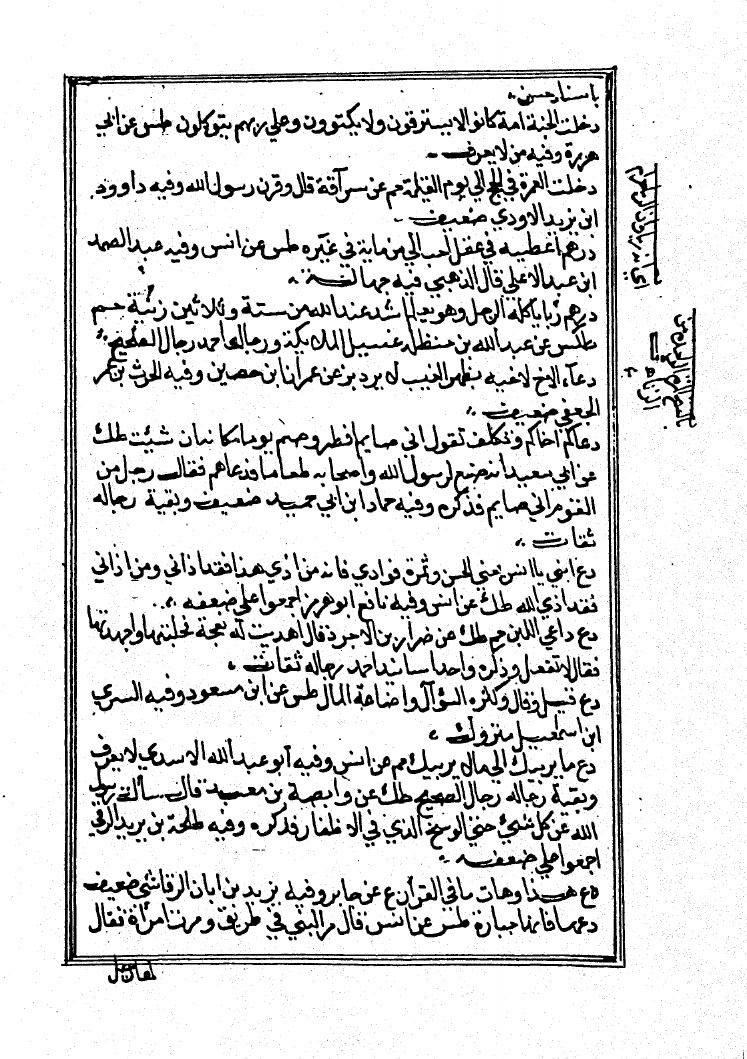 باسناد حسن
دخلت الجنة امة كانوا لا يسترقون ولا يكتوون وعلي ربهم يتوكلون طس عن ابي
هريرة وفيه من لا يعرف
دخلت العمرة في الحج الي يوم القيامة حم عن سراقة قال وقرن رسول الله وفيه داوود
ابن يزيد الاودي ضعيف
درهم اعطيه في عقل احب الي من ماية في غيره طس عن انس وفيه عبد الصمد
ابن عبد الاعلي قال الذهبي فيه جهالة
درهم ربا ياكله الرجل وهو يعلم اشد عند الله من ستة وثلاثين زنية حم
طكس عن عبد الله بن حنظلة غسيل الملايكة ورجال احمد رجال الصحيح
دعاء الاخ لاخيه بظهر الغيب لا يرد بز عن عمران ابن حصين وفيه الحرث بن عمر
الجعفي ضعيف
دعاكم اخاكم وتكلف تقول اني صايم افطر وصم يوما مكانه ان شيت طك
عن ابي سعيد انه صنع لرسول الله واصحابه طعاما فدعاهم فقال رجل من
القوم اني صايم فذكره وفيه حماد ابن ابي حميد ضعيف وبقية رجاله
ثقات
دع ابني يا انس يعني الحسن وثمرة فوادي فانه من اذي هذا فقد اذاني ومن اذاني
فقد اذي الله طك عن انس وفيه نافع ابو هرمز اجمعوا علي ضعفه
دع داعي اللبن حم طك عن ضرار بن الازور قال اهديت له نعجة نحلبتها واجهدتها
فقال لا تفعل وذكره واحد اسانيد احمد رجاله ثقات
دع قيل وقال وكثرة السؤال واضاعة المال طس عن ابن مسعود وفيه السري
ابن اسمعيل متروك
دع ما يريبك الي مالا يريبك حم عن انس وفيه ابو عبد الله الاسدي لا يعرف
وبقية رجاله رجال الصحيح طك عن وابصة بن معبد قال سالت رسول
الله عن كل شيء حتي الوسخ الذي في الاظفار فذكره وفيه طلحة بن يزيد الرقي
اجمعوا علي ضعفه
دع هذا وهات ما في القران ع عن جابر وفيه يزيد بن ابان الرقاشي ضعيف
دعها فانها جبارة طس عن انس قال مر النبي في طريق ومرت امراة فقال